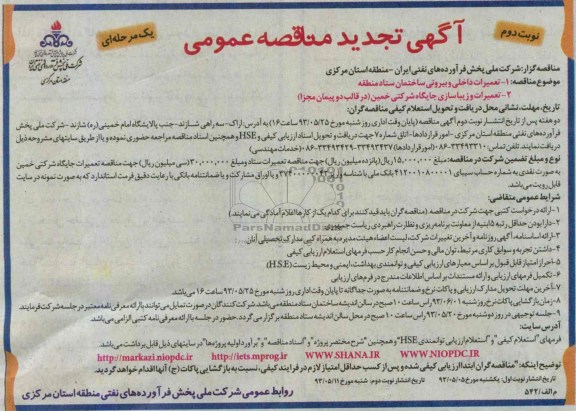 نوبت دوم
آگهی تجدید مناقصه عمومی
یک مرحله‌ای
شرکت ملی پخش فرآورده‌های نفتی ایران
منطقه استان مرکزی
مناقصه گزار: شرکت ملی پخش فرآورده‌های نفتی ایران - منطقه استان مرکزی
موضوع مناقصه: ۱- تعمیرات داخلی و بیرونی ساختمان ستاد منطقه
۲- تعمیرات و زیباسازی جایگاه شرکتی خمین (در قالب دو پیمان مجزا)
تاریخ، مهلت، نشانی محل دریافت و تحویل استعلام کیفی مناقصه گران:
دو هفته پس از تاریخ انتشار نوبت دوم آگهی مناقصه (پایان وقت اداری روز شنبه مورخ ۹۳/۰۵/۲۵ ساعت ۱۶) به آدرس: اراک- سه راهی شازند- جنب پالایشگاه امام خمینی (ره) شازند - شرکت ملی پخش
فرآورده‌های نفتی منطقه استان مرکزی - امور قراردادها - اتاق شماره ۷ جهت دریافت و تحویل اسناد ارزیابی کیفی و HSE و همچنین اسناد مناقصه مراجعه حضوری نموده و یا از طریق سایتهای مشروحه ذیل
دریافت نمایند. تلفن تماس: (امور قراردادها) (خدمات مهندسی)
نوع و مبلغ تضمین شرکت در مناقصه: مبلغ ۱۵,۰۰۰,۰۰۰ ریال (پانزده میلیون ریال) جهت مناقصه تعمیرات ستاد و مبلغ ۳۰,۰۰۰,۰۰۰ (سی میلیون ریال) جهت مناقصه تعمیرات جایگاه شرکتی خمین
به صورت نقدی به شماره حساب سیبای بانک ملی با شناسه واریز و یا اوراق مشارکت و یا ضمانتنامه بانکی با رعایت دقیق فرمت استاندارد که به صورت نمونه در سایت
قابل رویت می‌باشد
شرایط عمومی متقاضی:
۱- ارائه درخواست کتبی جهت شرکت در مناقصه (مناقصه گران باید قید کنند برای کدام یک از کارها اعلام آمادگی می‌نمایند.)
۲- دارا بودن حداقل رتبه ۵ ابنیه از معاونت برنامه‌ریزی و نظارت راهبردی ریاست جمهوری
۳- ارائه اساسنامه، آگهی روزنامه و آخرین تغییرات شرکت، لیست اعضاء هیئت مدیره به همراه کپی مدارک تحصیلی آنان
۴- داشتن تجربه و سوابق کاری مرتبط، توان مالی و حسن انجام کار حسب فرمهای استعلام ارزیابی کیفی
۵- احراز امتیاز قابل قبول بر اساس معیارهای ارزیابی کیفی و توانمندی بهداشت، ایمنی و محیط زیست (H.S.E)
۶- تکمیل فرمهای ارزیابی و ارائه مستندات بر اساس اطلاعات مندرج در فرم‌های ارزیابی
۷- آخرین مهلت تحویل مدارک ارزیابی و پاکات نرخ و ضمانتنامه به صورت جداگانه تا پایان وقت اداری روز شنبه مورخ ۹۳/۰۵/۲۵ ساعت ۱۶ می باشد
۸- زمان بازگشایی پاکات نرخ روز شنبه ۹۳/۰۶/۰۱ راس ساعت ۱۰ صبح در سالن اندیشه ساختمان ستاد منطقه می باشد شرکت کنندگان در صورت تمایل می توانند با ارائه معرفی نامه معتبر در جلسه شرکت فرمایند
۹- جلسه توجیهی در روز دوشنبه مورخ ۹۳/۰۵/۲۰ راس ساعت ۱۰ صبح در محل سالن اندیشه ستاد منطقه برگزار می گردد. حضور در جلسه با ارائه معرفی نامه کتبی الزامی می باشد
آدرس سایت:
فرمهای "استعلام کیفی" و "استعلام ارزیابی توانمندی HSE" و همچنین "شرح مختصر پروژه" و "اسناد مناقصه" و "برآورد اولیه پروژه‌ها" در سایتهای ذیل قابل برداشت می باشد.
http://markazi.niopdc.ir http://iets.mporg.ir WWW.SHANA.IR WWW.NIOPDC.IR
توضیح اینکه: "مناقصه گران ابتدا ارزیابی کیفی شده و پس از کسب حداقل امتیاز لازم در فرایند کیفی، نسبت به بازگشایی پاکات (ج) آنها اقدام خواهد گردید.
تاریخ انتشار نوبت اول: یکشنبه مورخ ۹۳/۰۵/۰۵ تاریخ انتشار نوبت دوم: شنبه مورخ ۹۳/۰۵/۱۱
م الف/۵۴۲
روابط عمومی شرکت ملی پخش فرآورده های نفتی منطقه استان مرکزی